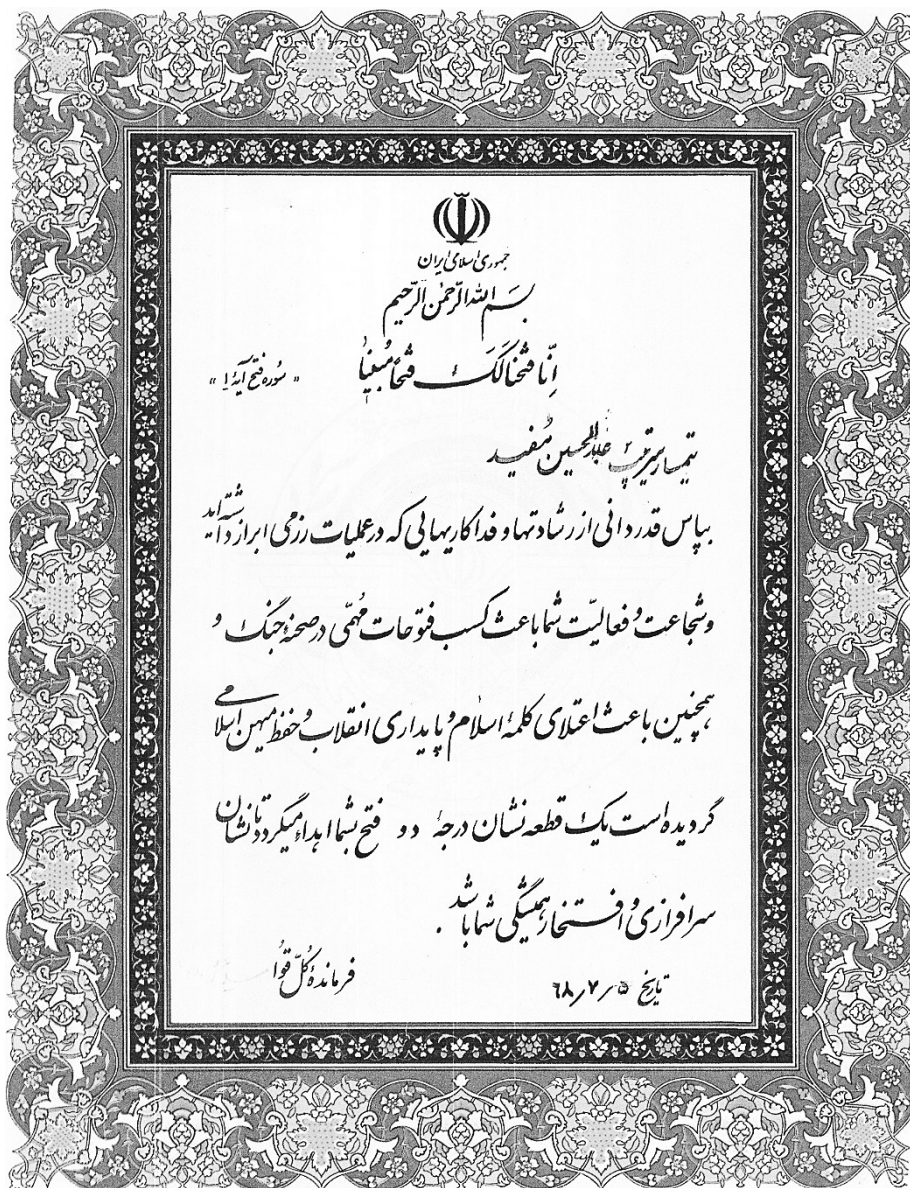 جمهوری اسلامی ایران
بسم الله الرّحمن الرّحیم
اِنّا فَتَحنا لَکَ فَتحاً مُبیناً « سُوره فتح آیهٔ ۱ »
تیمسار سرتیپ عبدالحسین مُفید
بپاس قدردانی از رشادتها و فداکاریهایی که در عملیات رزمی ابراز داشته‌اید
و شجاعت و فعالیّت شما باعث کسب فتوحات مُهمّی در صحنهٔ جنگ و
همچنین باعث اعتلای کلمهٔ اسلام و پایداری انقلاب و حفظ میهن اسلامی
گردیده است یک قطعه نشان درجهٔ دو فتح بشما اهداء میگردد تا نشان
سرافرازی و افتخار همیشگی شما باشد .
تاریخ ۶۸٫۷٫۵ فرماندهٔ کُلّ قُوا